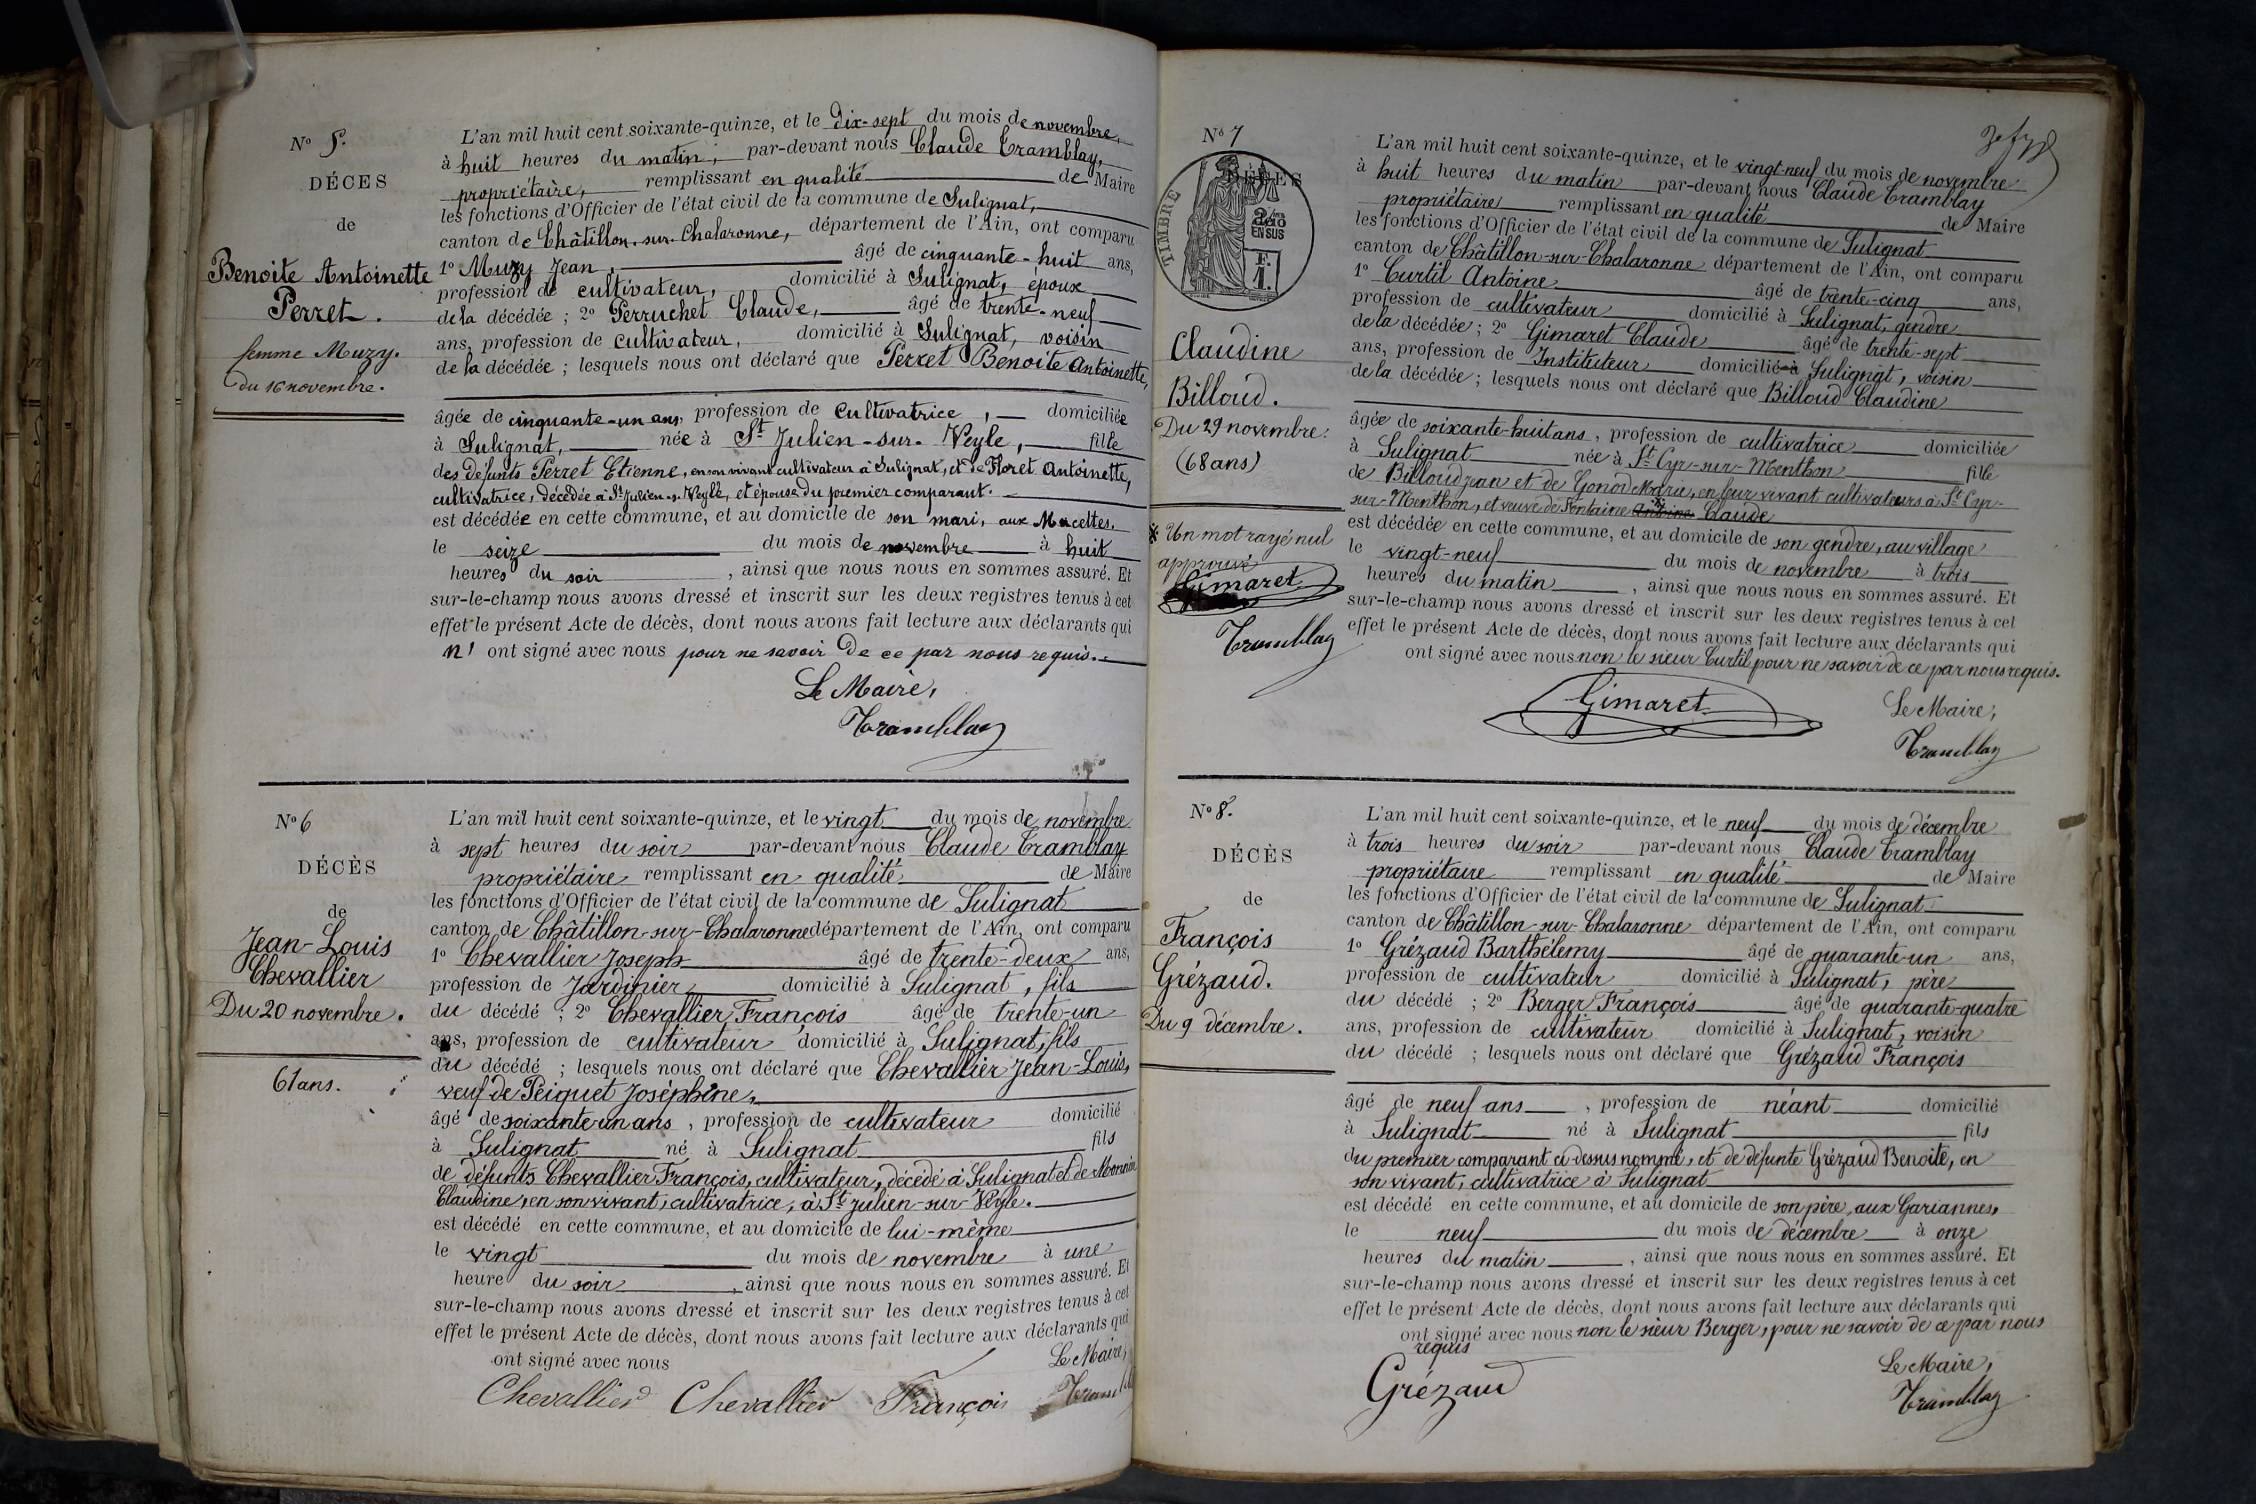 N° 5.
DÉCES
de
Benoite Antoinette
Perret.
femme Muzy.
du 16 novembre.
L'an mil huit cent soixante-quinze, et le dix-sept du mois de novembre,
à huit heures du matin, par-devant nous Claude Tramblay,
propriétaire, remplissant en qualité de Maire
les fonctions d'Officier de l'état civil de la commune de Sulignat,
canton de Châtillon-sur-Chalaronne, département de l'Ain, ont comparu
1° Muzy Jean, âgé de cinquante-huit ans,
profession de cultivateur, domicilié à Sulignat, époux
de la décédée ; 2° Perruchet Claude, âgé de trente-neuf
ans, profession de cultivateur, domicilié à Sulignat, voisin
de la décédée ; lesquels nous ont déclaré que Perret Benoite Antoinette,
âgée de cinquante-un ans, profession de Cultivatrice, domiciliée
à Sulignat, née à St Julien-sur-Veyle, fille
des défunts Perret Etienne, en son vivant cultivateur à Sulignat, et de Floret Antoinette,
cultivatrice, décédée à St Julien-s.-Veyle, et épouse du premier comparant.
est décédée en cette commune, et au domicile de son mari, aux Mucettes.
le seize du mois de novembre à huit
heures du soir, ainsi que nous nous en sommes assuré. Et
sur-le-champ nous avons dressé et inscrit sur les deux registres tenus à cet
effet le présent Acte de décès, dont nous avons fait lecture aux déclarants qui
n' ont signé avec nous pour ne savoir de ce par nous requis.
Le Maire,
Tramblay
N° 6
DÉCÈS
de
Jean-Louis
Chevallier
Du 20 novembre.
61 ans.
L'an mil huit cent soixante-quinze, et le vingt du mois de novembre
à sept heures du soir par-devant nous Claude Tramblay
propriétaire remplissant en qualité de Maire
les fonctions d'Officier de l'état civil de la commune de Sulignat
canton de Châtillon-sur-Chalaronne département de l'Ain, ont comparu
1° Chevallier Joseph âgé de trente-deux ans,
profession de Jardinier domicilié à Sulignat, fils
du décédé ; 2° Chevallier François âgé de trente-un
ans, profession de cultivateur domicilié à Sulignat, fils
du décédé ; lesquels nous ont déclaré que Chevallier Jean-Louis,
veuf de Peiguet Joséphine,
âgé de soixante-un ans, profession de cultivateur domicilié
à Sulignat né à Sulignat fils
de défunts Chevallier François, cultivateur, décédé à Sulignat et de Monnier
Claudine, en son vivant, cultivatrice, à St Julien-sur-Veyle.
est décédé en cette commune, et au domicile de lui-même
le vingt du mois de novembre à une
heure du soir, ainsi que nous nous en sommes assuré. Et
sur-le-champ nous avons dressé et inscrit sur les deux registres tenus à cet
effet le présent Acte de décès, dont nous avons fait lecture aux déclarants qui
ont signé avec nous Le Maire,
Chevallier Chevallier François
N° 7
TIMBRE
2/10
EN SUS
Claudine
Billoud.
Du 29 novembre.
(68 ans)
※ Un mot rayé nul
approuvé
Gimaret
Tramblay
L'an mil huit cent soixante-quinze, et le vingt-neuf du mois de novembre
à huit heures du matin par-devant nous Claude Tramblay
propriétaire remplissant en qualité de Maire
les fonctions d'Officier de l'état civil de la commune de Sulignat
canton de Châtillon-sur-Chalaronne département de l'Ain, ont comparu
1° Curtil Antoine âgé de trente-cinq ans,
profession de cultivateur domicilié à Sulignat, gendre
de la décédée ; 2° Gimaret Claude âgé de trente-sept
ans, profession de Instituteur domicilié à Sulignat, voisin
de la décédée ; lesquels nous ont déclaré que Billoud Claudine
âgée de soixante-huit ans, profession de cultivatrice domiciliée
à Sulignat née à St Cyr-sur-Menthon fille
de Billoud Jean et de Gonod Marie, en leur vivant cultivateurs à St Cyr-
sur-Menthon, et veuve de Fontaine Antoine ※ Claude
est décédée en cette commune, et au domicile de son gendre, au village
le vingt-neuf du mois de novembre à trois
heures du matin, ainsi que nous nous en sommes assuré. Et
sur-le-champ nous avons dressé et inscrit sur les deux registres tenus à cet
effet le présent Acte de décès, dont nous avons fait lecture aux déclarants qui
ont signé avec nous non le sieur Curtil pour ne savoir de ce par nous requis.
Gimaret
Le Maire,
Tramblay
N° 8.
DÉCÈS
de
François
Grézaud.
Du 9 décembre.
L'an mil huit cent soixante-quinze, et le neuf du mois de décembre
à trois heures du soir par-devant nous Claude Tramblay
propriétaire remplissant en qualité de Maire
les fonctions d'Officier de l'état civil de la commune de Sulignat
canton de Châtillon-sur-Chalaronne département de l'Ain, ont comparu
1° Grézaud Barthélemy âgé de quarante-un ans,
profession de cultivateur domicilié à Sulignat, père
du décédé ; 2° Berger François âgé de quarante-quatre
ans, profession de cultivateur domicilié à Sulignat, voisin
du décédé ; lesquels nous ont déclaré que Grézaud François
âgé de neuf ans, profession de néant domicilié
à Sulignat né à Sulignat fils
du premier comparant ci-dessus nommé, et de défunte Grézaud Benoite, en
son vivant, cultivatrice à Sulignat
est décédé en cette commune, et au domicile de son père, aux Gariannes,
le neuf du mois de décembre à onze
heures du matin, ainsi que nous nous en sommes assuré. Et
sur-le-champ nous avons dressé et inscrit sur les deux registres tenus à cet
effet le présent Acte de décès, dont nous avons fait lecture aux déclarants qui
ont signé avec nous non le sieur Berger, pour ne savoir de ce par nous
requis
Grézaud
Le Maire,
Tramblay